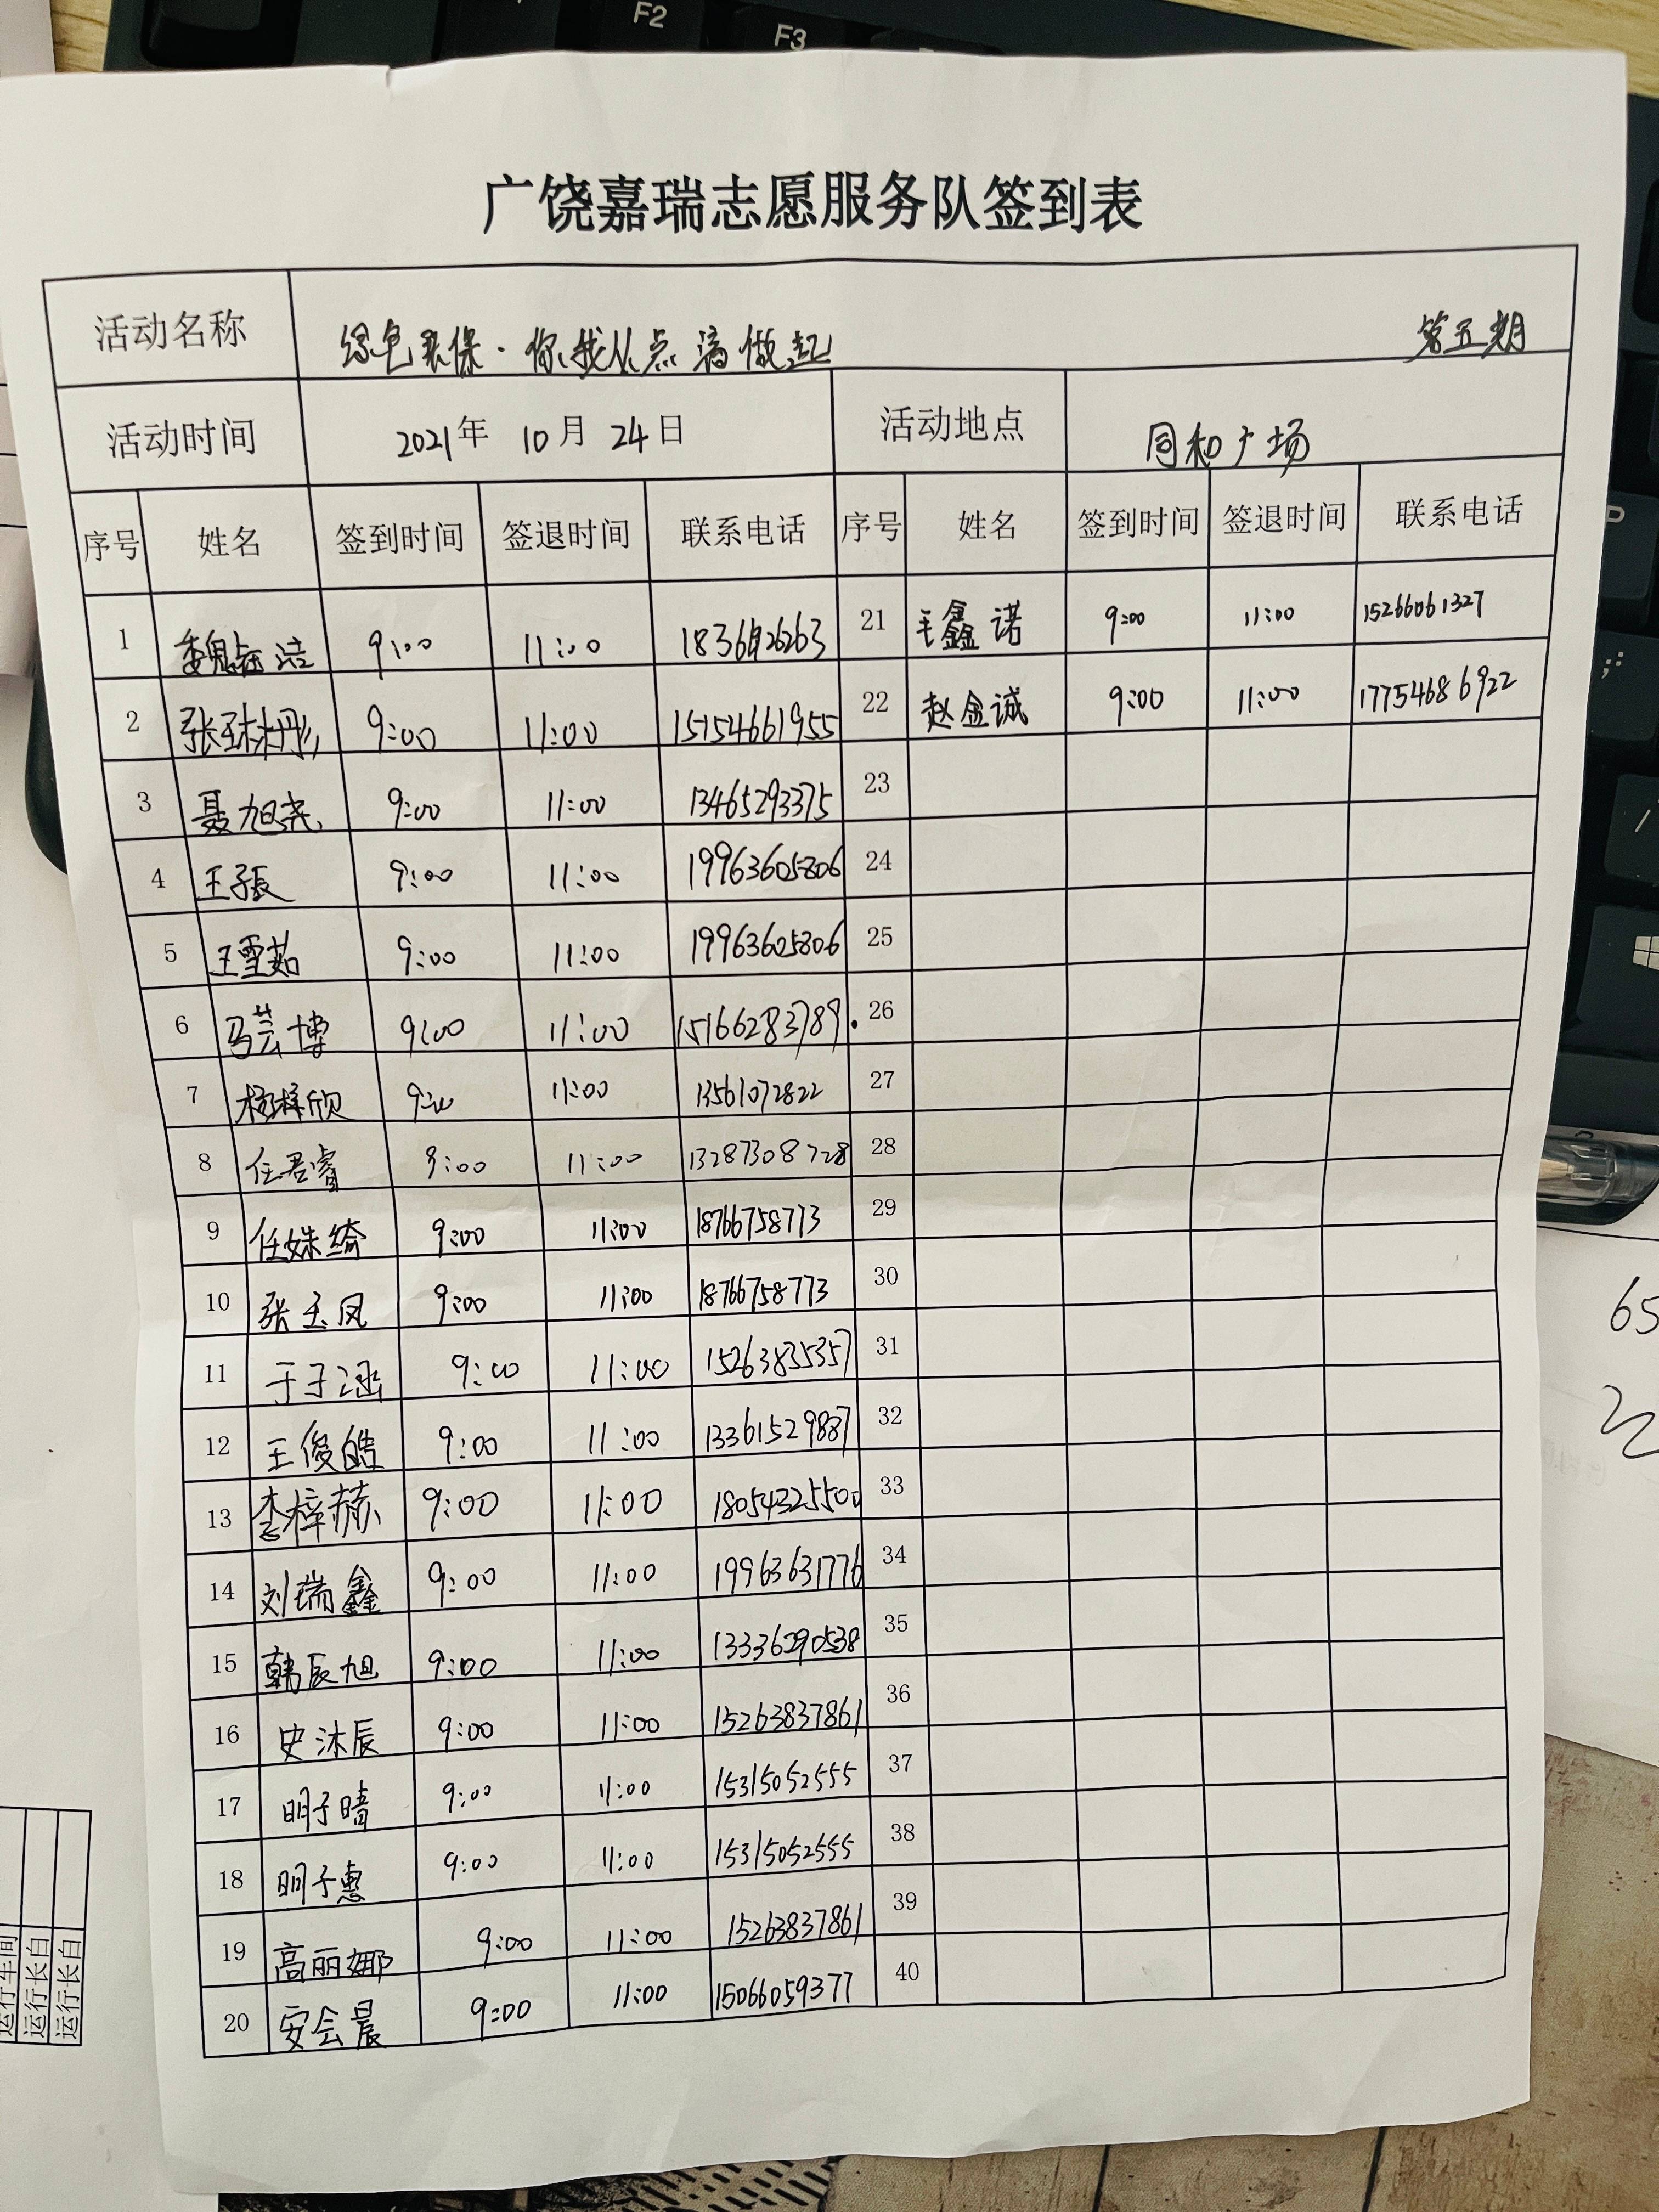 F2
F3
广饶嘉瑞志愿服务队签到表
活动名称 绿色环保·你我从点滴做起 第五期
活动时间 2021年 10月 24日 活动地点 同和广场
序号 姓名 签到时间 签退时间 联系电话 序号 姓名 签到时间 签退时间 联系电话
1 魏颖洁 9:00 11:00 21 毛鑫诺 9:00 11:00 15266061327
2 张琳彤 9:00 11:00 15154661955 22 赵金诚 9:00 11:00 17754686922
3 聂旭尧 9:00 11:00 13465293375 23
4 王子辰 9:00 11:00 19963605806 24
5 王雪茹 9:00 11:00 19963605806 25
6 马芸博 9:00 11:00 15166283789 26
7 杨梓欣 9:00 11:00 13561072822 27
8 任君睿 9:00 11:00 13287308728 28
9 任姝绮 9:00 11:00 18766758773 29
10 张玉凤 9:00 11:00 18766758773 30
11 于子涵 9:00 11:00 15263835357 31
12 王俊皓 9:00 11:00 13361529887 32
13 李梓赫 9:00 11:00 18054325500 33
14 刘瑞鑫 9:00 11:00 19963631776 34
15 韩辰旭 9:00 11:00 13336290538 35
16 史沐辰 9:00 11:00 15263837861 36
17 明子晴 9:00 11:00 15315052555 37
18 明子惠 9:00 11:00 15315052555 38
19 高丽娜 9:00 11:00 15263837861 39
20 安会晨 9:00 11:00 15066059377 40
65
运行车间
运行长白
运行长白